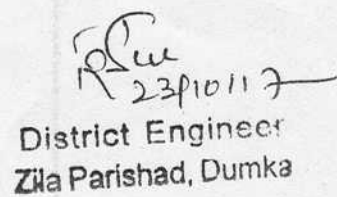 23/10/17
District Engineer
Zila Parishad, Dumka